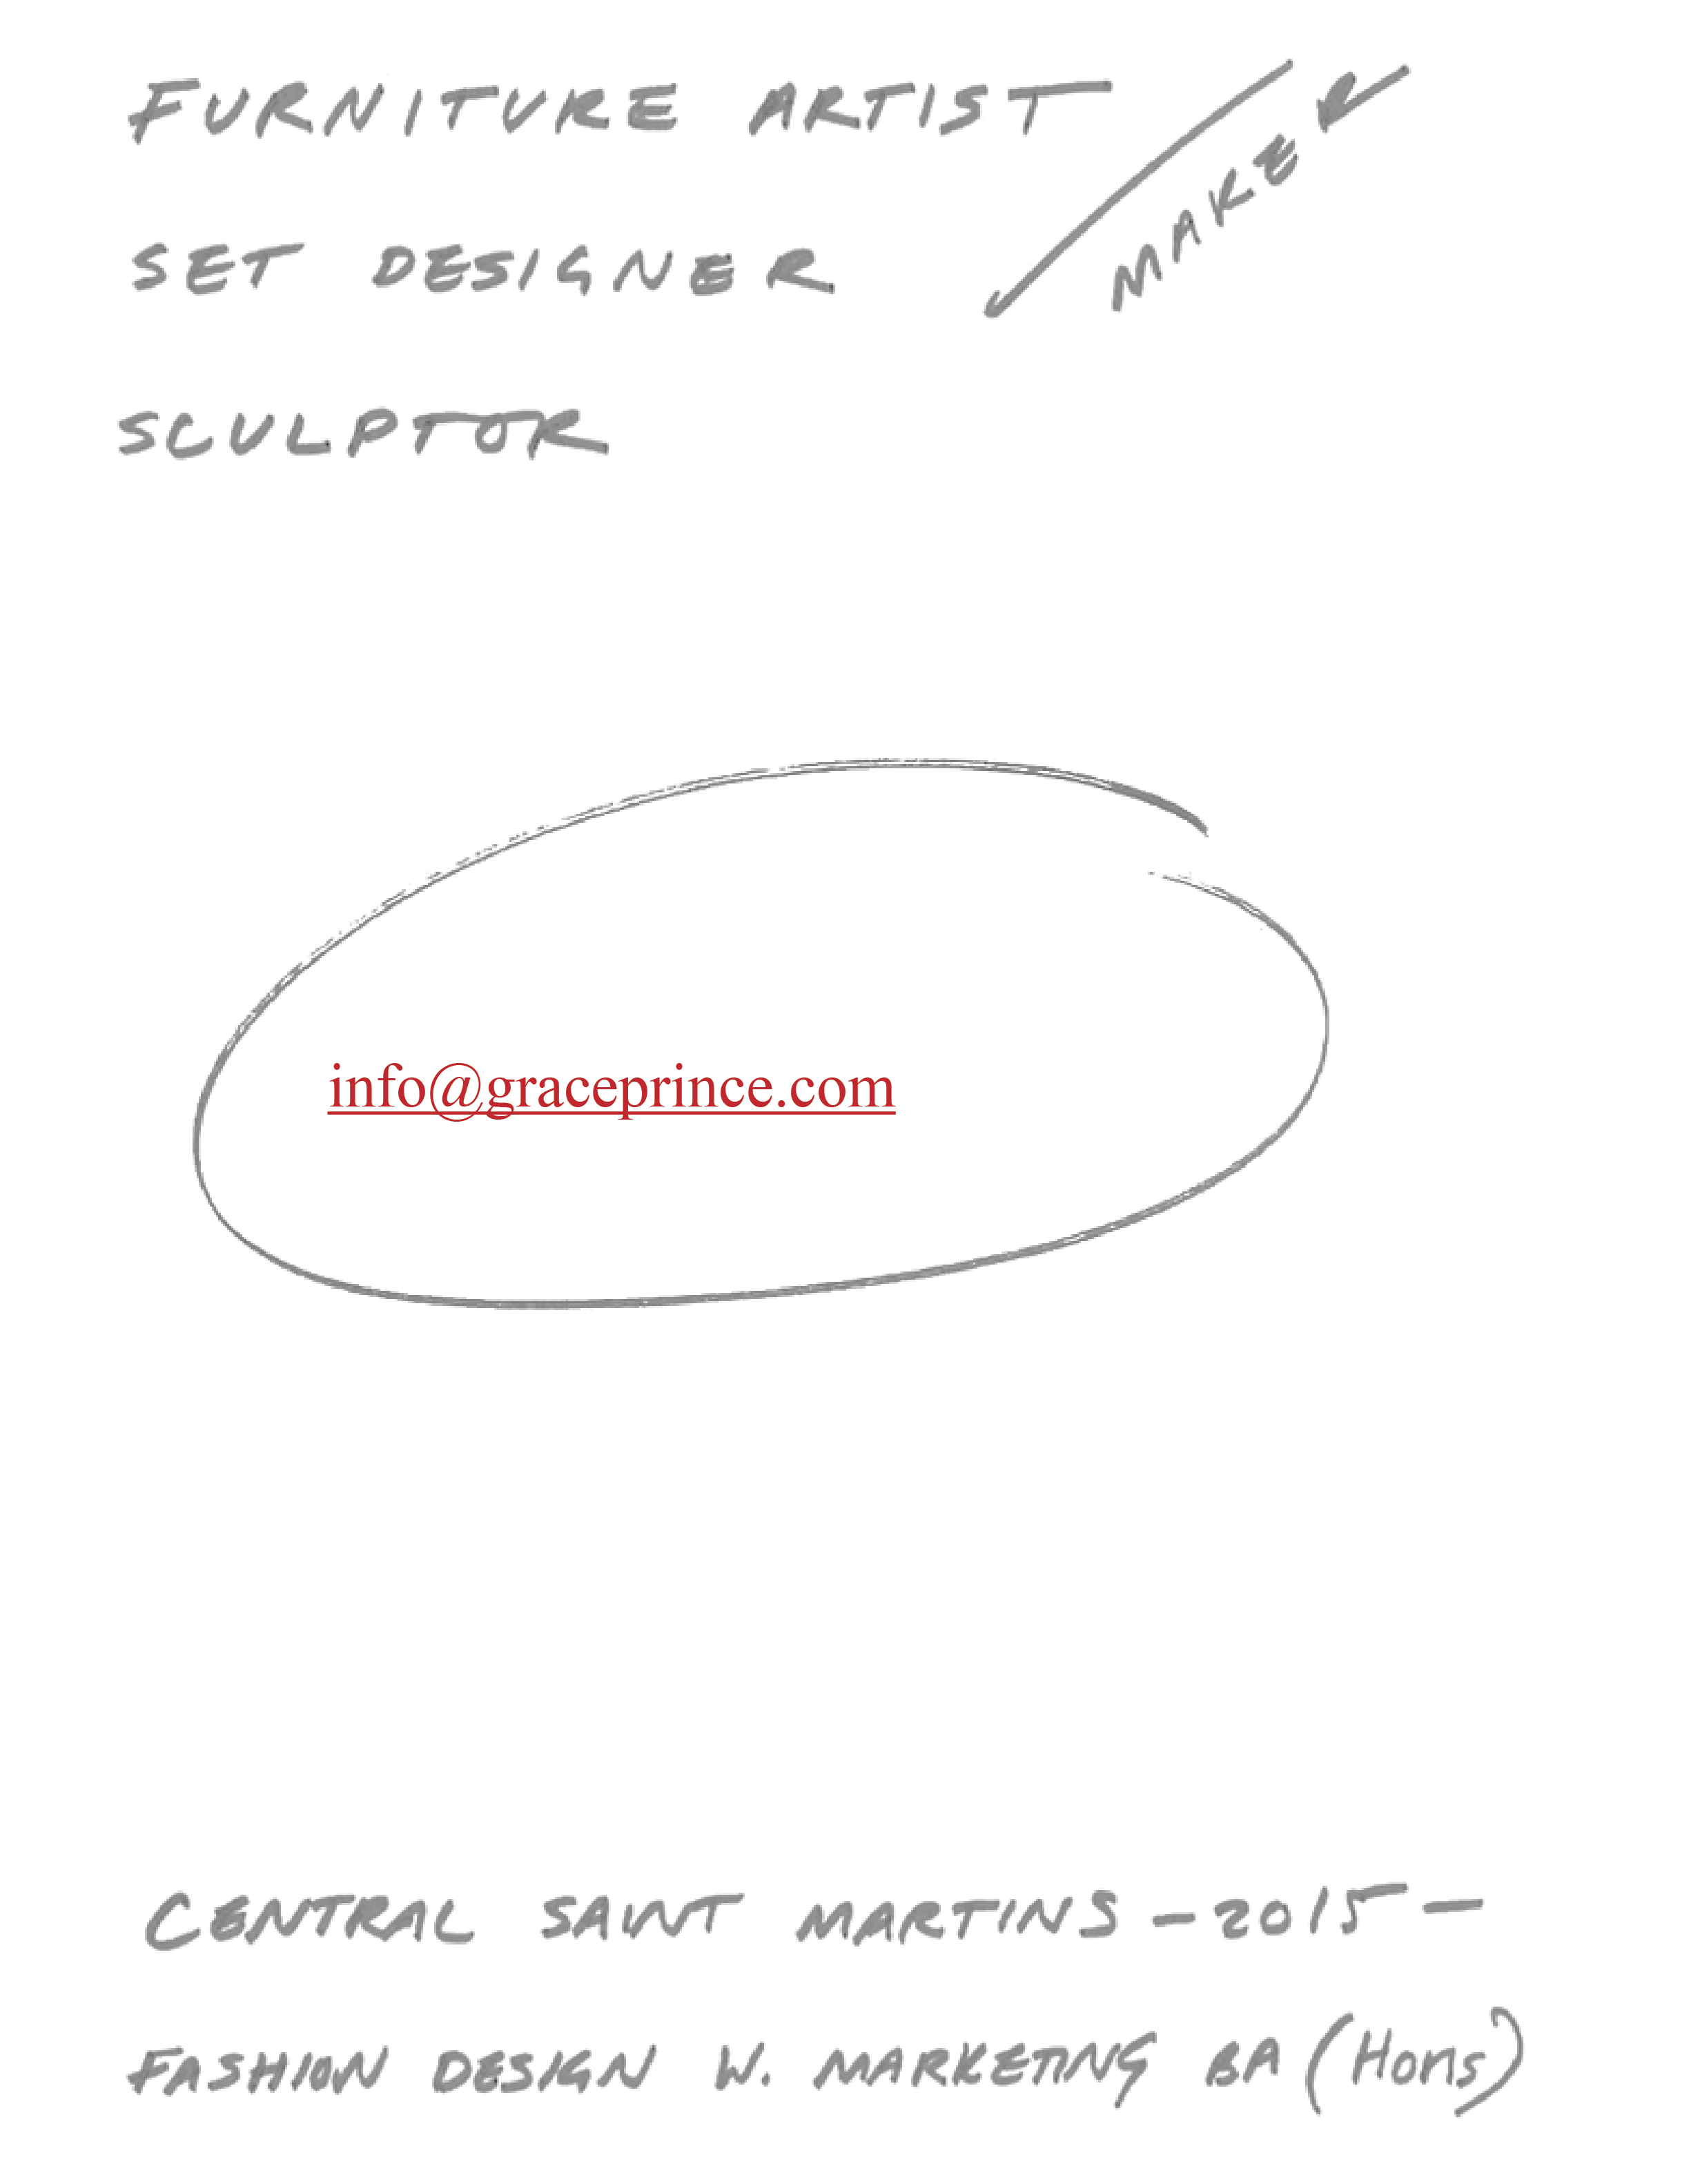 FURNITURE ARTIST / MAKER
SET DESIGNER
SCULPTOR
info@graceprince.com
CENTRAL SAINT MARTINS - 2015 -
FASHION DESIGN W. MARKETING BA (Hons)